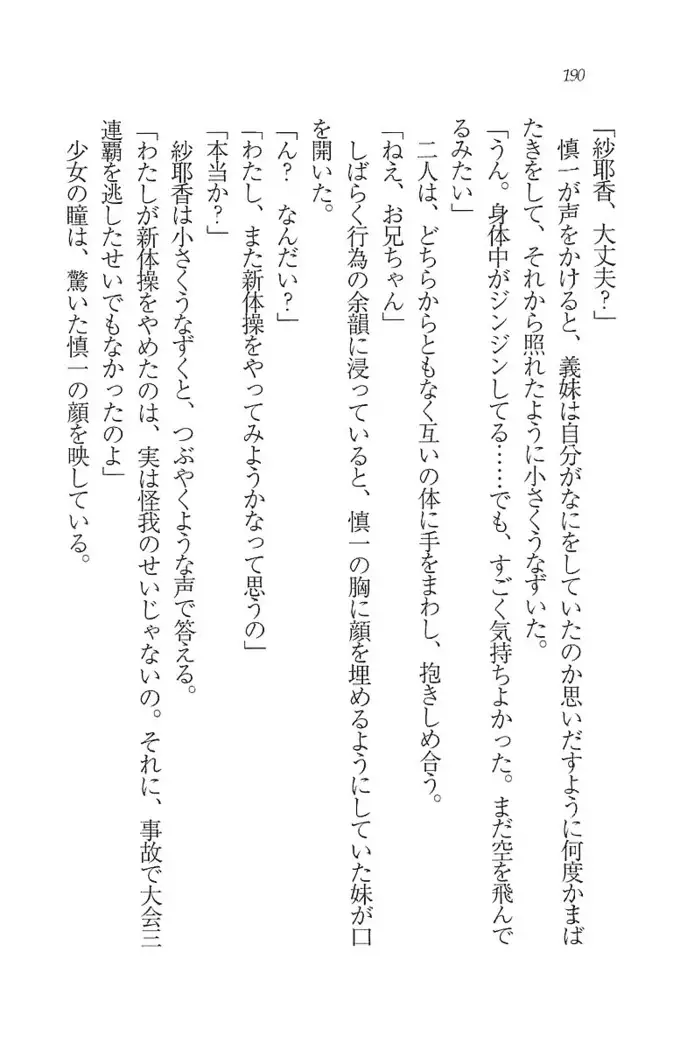 190
「紗耶香、大丈夫？」
慎一が声をかけると、義妹は自分がなにをしていたのか思いだすように何度かまば
たきをして、それから照れたように小さくうなずいた。
「うん。身体中がジンジンしてる……でも、すごく気持ちよかった。まだ空を飛んで
るみたい」
二人は、どちらからともなく互いの体に手をまわし、抱きしめ合う。
「ねえ、お兄ちゃん」
しばらく行為の余韻に浸っていると、慎一の胸に顔を埋めるようにしていた妹が口
を開いた。
「ん？　なんだい？」
「わたし、また新体操をやってみようかなって思うの」
「本当か？」
紗耶香は小さくうなずくと、つぶやくような声で答える。
「わたしが新体操をやめたのは、実は怪我のせいじゃないの。それに、事故で大会三
連覇を逃したせいでもなかったのよ」
少女の瞳は、驚いた慎一の顔を映している。